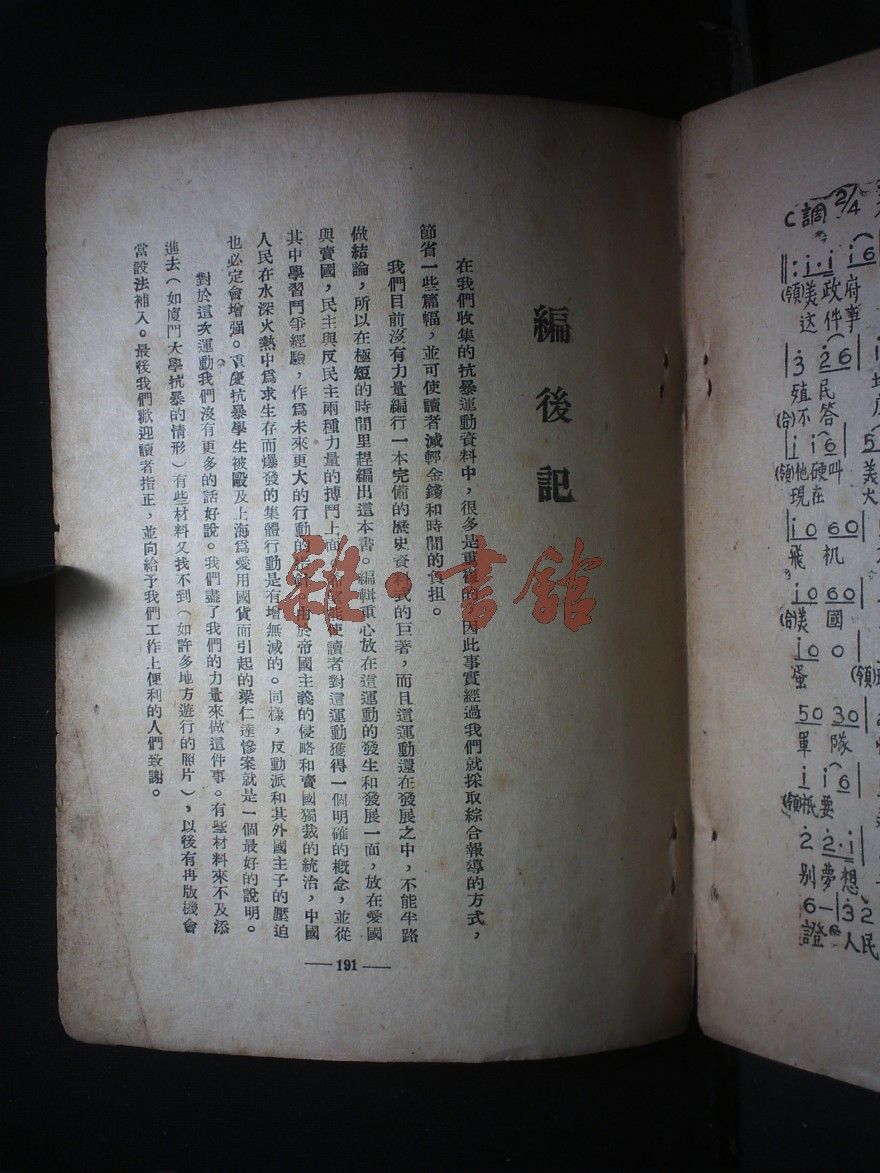 編後記
在我們收集的抗暴運動資料中，很多是重複的，因此事實經過我們就採取綜合報導的方式，
節省一些篇幅，並可使讀者減輕金錢和時間的負担。
我們目前沒有力量編行一本完備的歷史資料式的巨著，而且這運動還在發展之中，不能半路
做結論，所以在極短的時間里趕編出這本書。編輯重心放在這運動的發生和發展一面，放在愛國
與賣國，民主與反民主兩種力量的搏鬥上面，使讀者對這運動獲得一個明確的概念，並從
其中學習鬥爭經驗，作爲未來更大的行動的 由於帝國主義的侵略和賣國獨裁的統治，中國
人民在水深火熱中爲求生存而爆發的集體行動是有增無減的。同樣，反動派和其外國主子的壓迫
也必定會增强。重慶抗暴學生被毆及上海爲愛用國貨而引起的梁仁達慘案就是一個最好的說明。
對於這次運動我們沒有更多的話好說。我們盡了我們的力量來做這件事。有些材料來不及添
進去（如廈門大學抗暴的情形）有些材料又找不到（如許多地方遊行的照片），以後有再版機會
當設法補入。最後我們歡迎讀者指正，並向給予我們工作上便利的人們致謝。
— 191 —
雜·書館
C調 2/4
(領)美政府
这件事
殖民
(合)不答
(領)他硬叫 美
現在
飛机
(合)美國
蛋 (領)
軍隊
(領)祇要
别夢想
證 人民